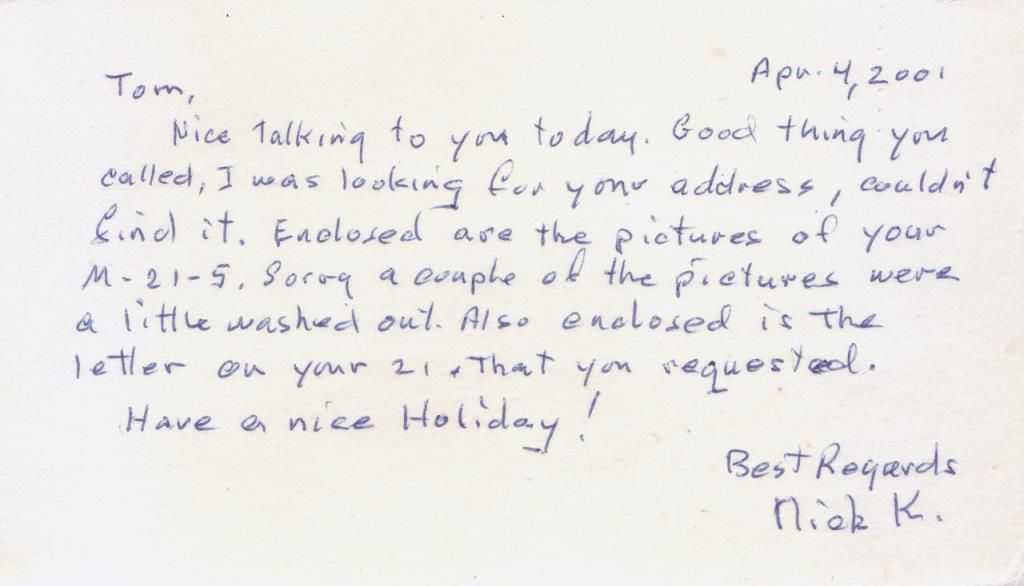 Apr. 4, 2001
Tom,
Nice Talking to you today. Good thing you
called, I was looking for your address, couldn't
find it. Enclosed are the pictures of your
M-21-5. Sorry a couple of the pictures were
a little washed out. Also enclosed is the
letter on your 21. That you requested.
Have a nice Holiday!
Best Regards
Nick K.